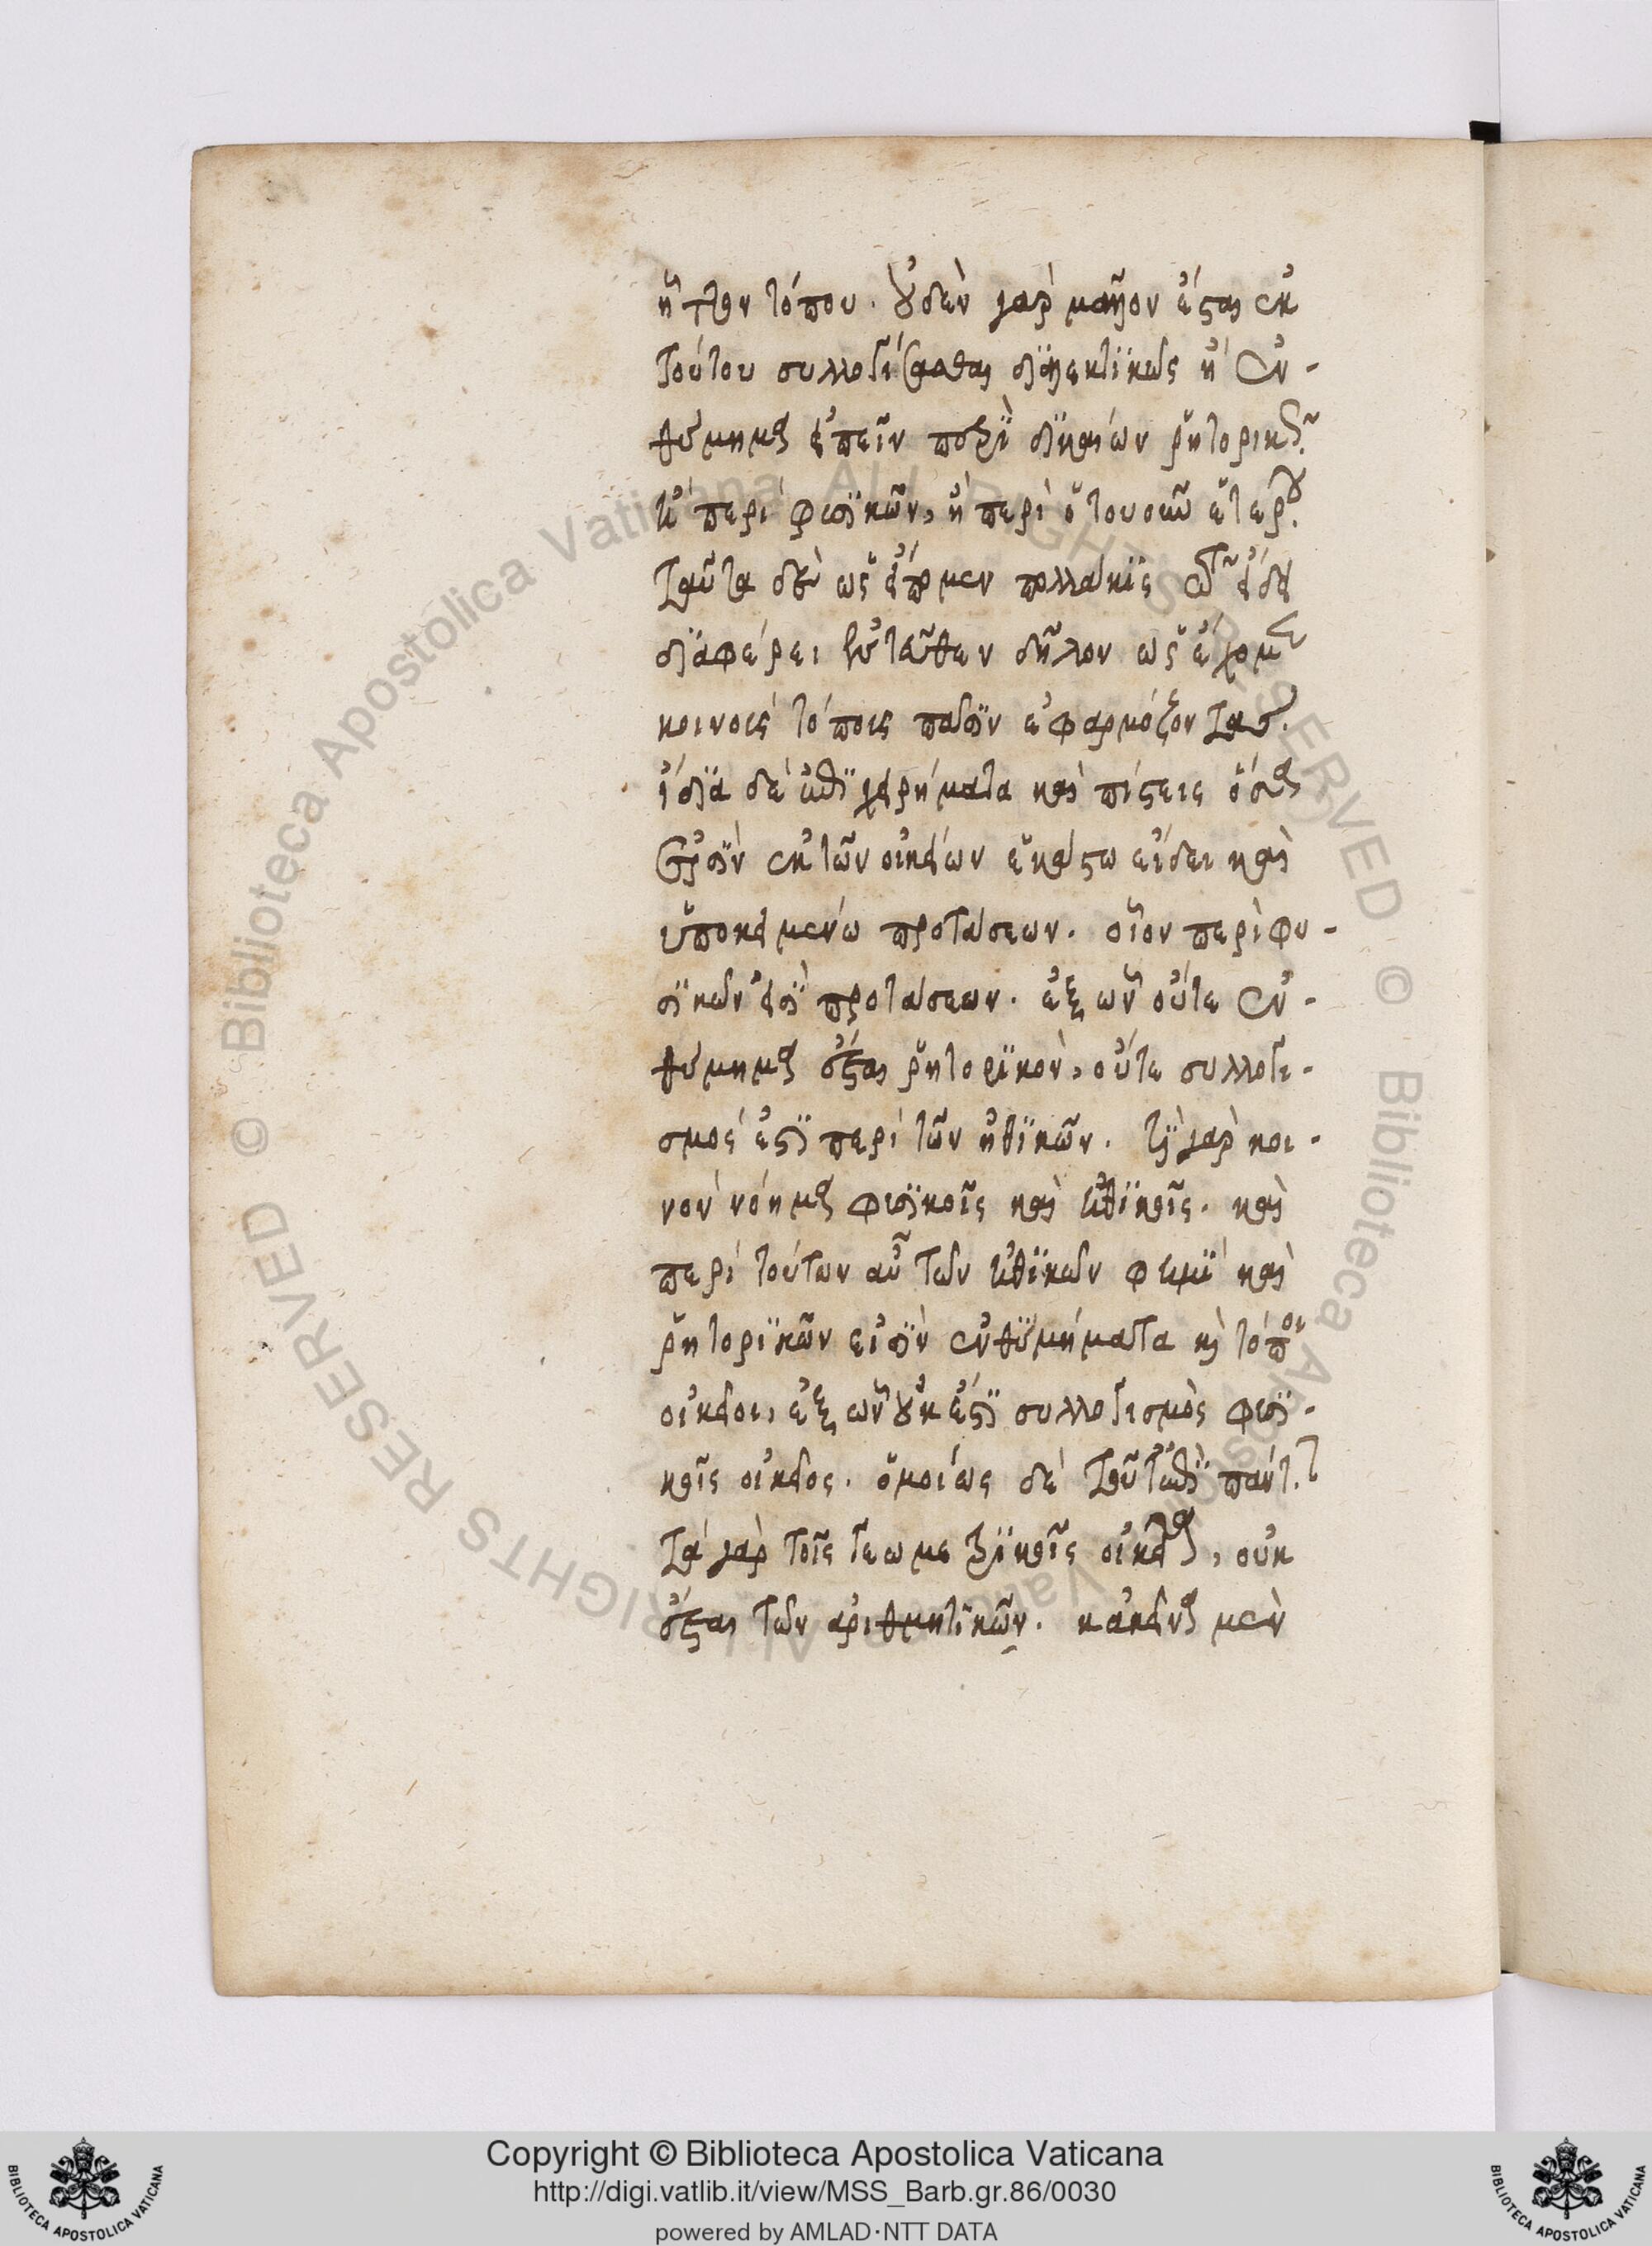 ἧττον τόπου. οὐδὲν γὰρ μᾶλλον ἔσται ἐκ
τούτου συλλογίσασθαι διαλεκτικῶς ἢ ἐν-
θύμημα εἰπεῖν περὶ δικαίων ῥητορικῶς
ἢ περὶ φυσικῶν, ἢ περὶ ὁτουοῦν ἑτέρου.
ταῦτα δὲ ὡς εἴπομεν πολλάκις εἴδει
διαφέρει ἐντεῦθεν δῆλον ὡς ἔχομεν
κοινοῖς τόποις πᾶσιν ἐφαρμόζοντας.
ἴδια δὲ ἐπιχειρήματα καὶ πίστεις ὅσα
εἰσὶν ἐκ τῶν οἰκείων ἑκάστω εἴδει καὶ
ὑποκειμένω προτάσεων. οἷον περὶ φυ-
σικῶν εἰσὶ προτάσεων. ἐξ ὧν οὔτε ἐν-
θύμημα ἔσται ῥητορικὸν, οὔτε συλλογι-
σμός ἐστι περὶ τῶν ἠθικῶν. τί γὰρ κοι-
νὸν νόημα φυσικοῖς καὶ ἠθικοῖς. καὶ
περὶ τούτων αὖ τῶν ἠθικῶν φημὶ καὶ
ῥητορικῶν εἰσὶν ἐνθυμήματα καὶ τόποι
οἰκεῖοι, ἐξ ὧν οὐκ ἔστι συλλογισμὸς φυσι-
κοῖς οἰκεῖος. ὁμοίως δὲ τοῦτ' ἐπὶ πάντων.
τὰ γὰρ τοῖς γεωμετρικοῖς οἰκεῖα, οὐκ
ἔσται τῶν ἀριθμητικῶν. κἀκεῖνα μὲν
Copyright © Biblioteca Apostolica Vaticana
http://digi.vatlib.it/view/MSS_Barb.gr.86/0030
powered by AMLAD·NTT DATA